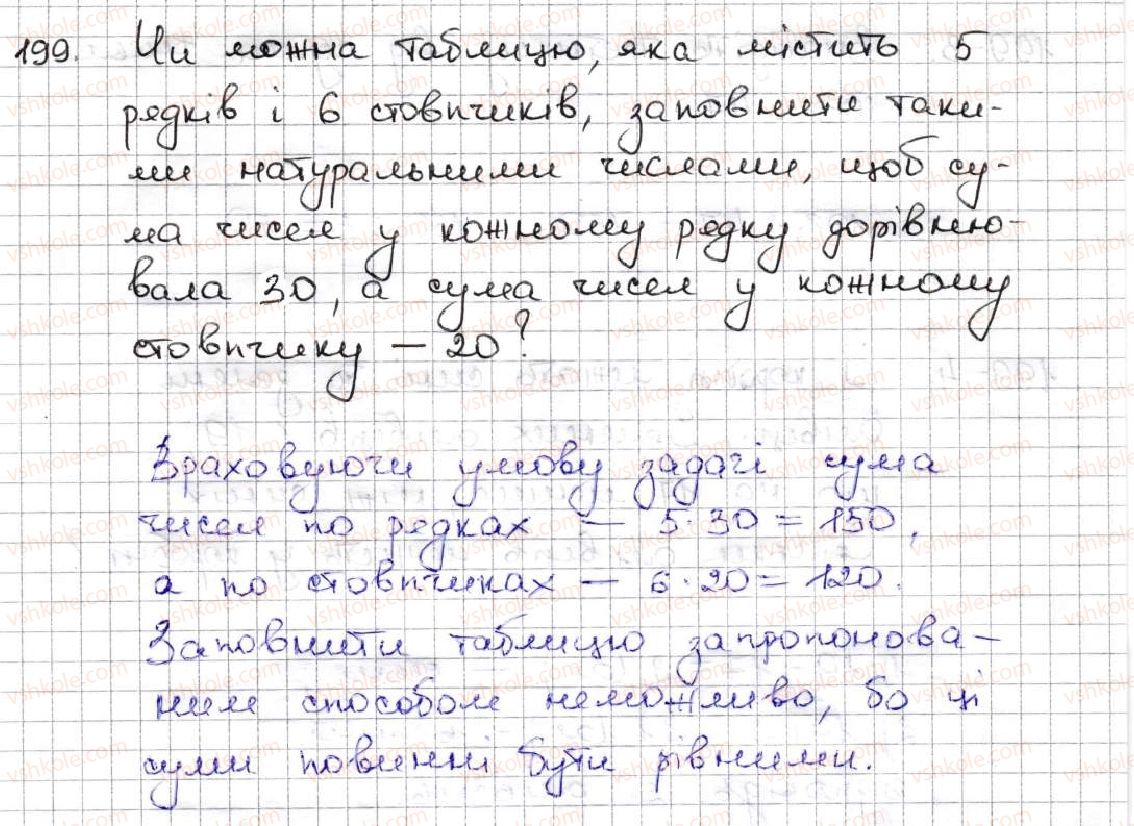 199. Чи можна таблицю, яка містить 5
рядків і 6 стовпчиків, заповнити таки-
ми натуральними числами, щоб су-
ма чисел у кожному рядку дорівню-
вала 30, а сума чисел у кожному
стовпчику – 20?
Враховуючи умову задачі сума
чисел по рядках – 5·30=150,
а по стовпчиках – 6·20=120.
Заповнити таблицю запропонова-
ним способом неможливо, бо ці
суми повинні бути рівними.